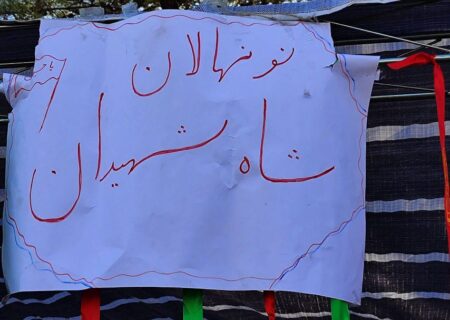 نونهالان
شاه شهیدان